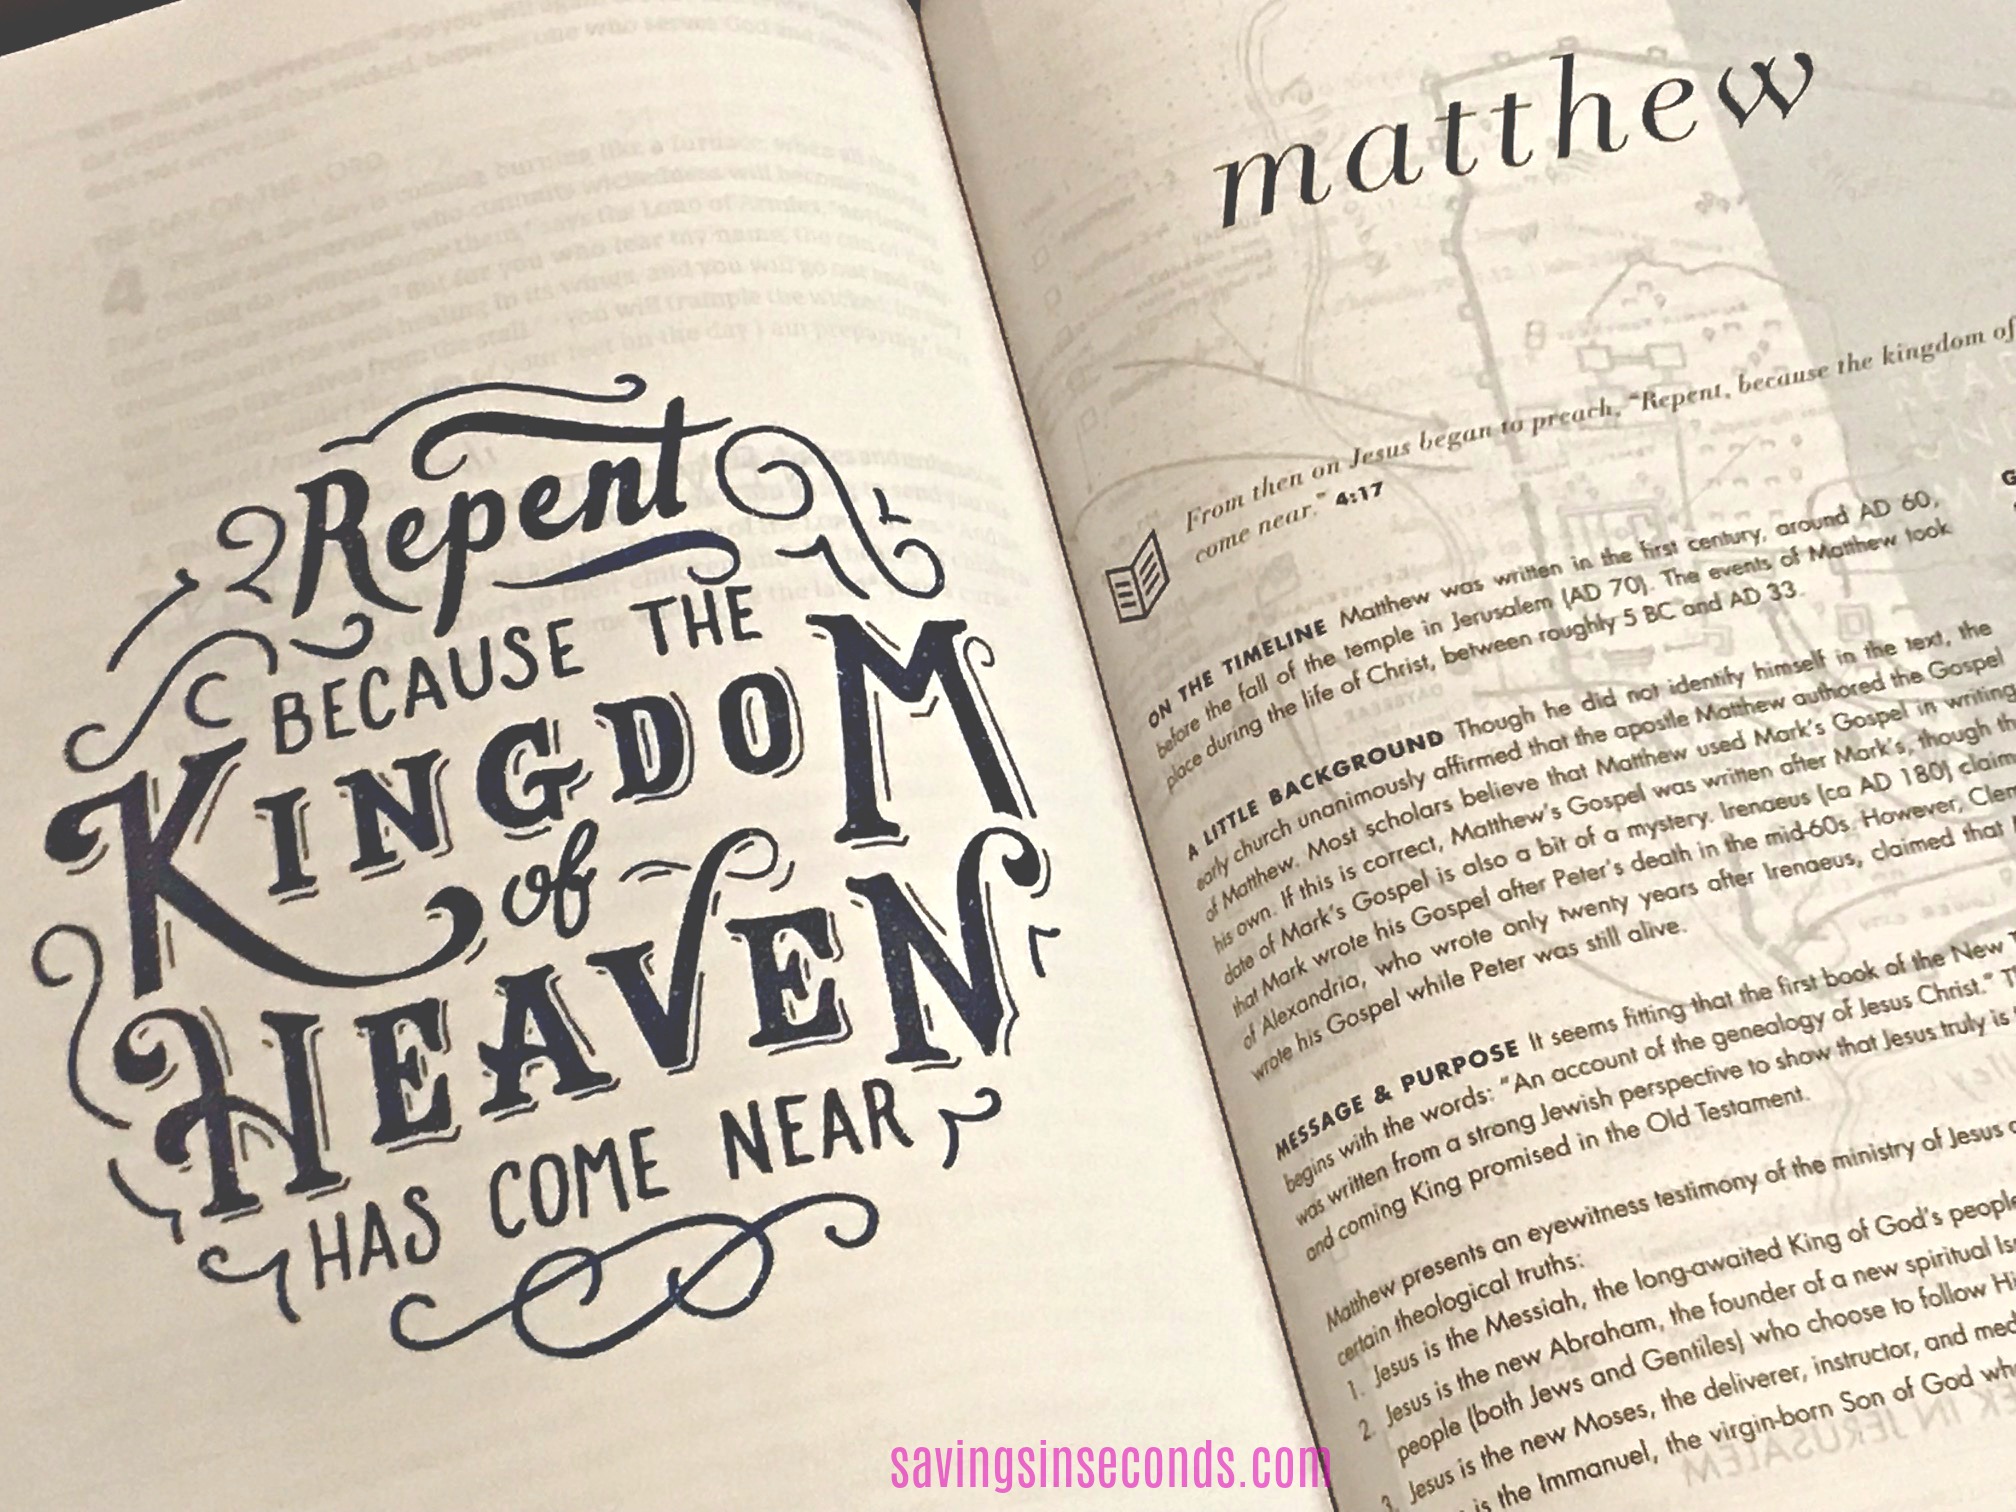 Repent
BECAUSE THE
KINGDOM
of
HEAVEN
HAS COME NEAR
matthew
From then on Jesus began to preach, “Repent, because the kingdom of
come near.” 4:17
G
ON THE TIMELINE Matthew was written in the first century, around AD 60,
before the fall of the temple in Jerusalem (AD 70). The events of Matthew took
place during the life of Christ, between roughly 5 BC and AD 33.
A LITTLE BACKGROUND Though he did not identify himself in the text, the
early church unanimously affirmed that the apostle Matthew authored the Gospel
of Matthew. Most scholars believe that Matthew used Mark's Gospel in writing
his own. If this is correct, Matthew's Gospel was written after Mark's, though the
date of Mark's Gospel is also a bit of a mystery. Irenaeus (ca AD 180) claim
that Mark wrote his Gospel after Peter's death in the mid-60s. However, Clem
of Alexandria, who wrote only twenty years after Irenaeus, claimed that
wrote his Gospel while Peter was still alive.
MESSAGE & PURPOSE It seems fitting that the first book of the New T
begins with the words: “An account of the genealogy of Jesus Christ.” T
was written from a strong Jewish perspective to show that Jesus truly is
and coming King promised in the Old Testament.
Matthew presents an eyewitness testimony of the ministry of Jesus
certain theological truths:
1. Jesus is the Messiah, the long-awaited King of God's people
2. Jesus is the new Abraham, the founder of a new spiritual Is
people (both Jews and Gentiles) who choose to follow Hi
3. Jesus is the new Moses, the deliverer, instructor, and med
is the Immanuel, the virgin-born Son of God wh
savingsinseconds.com